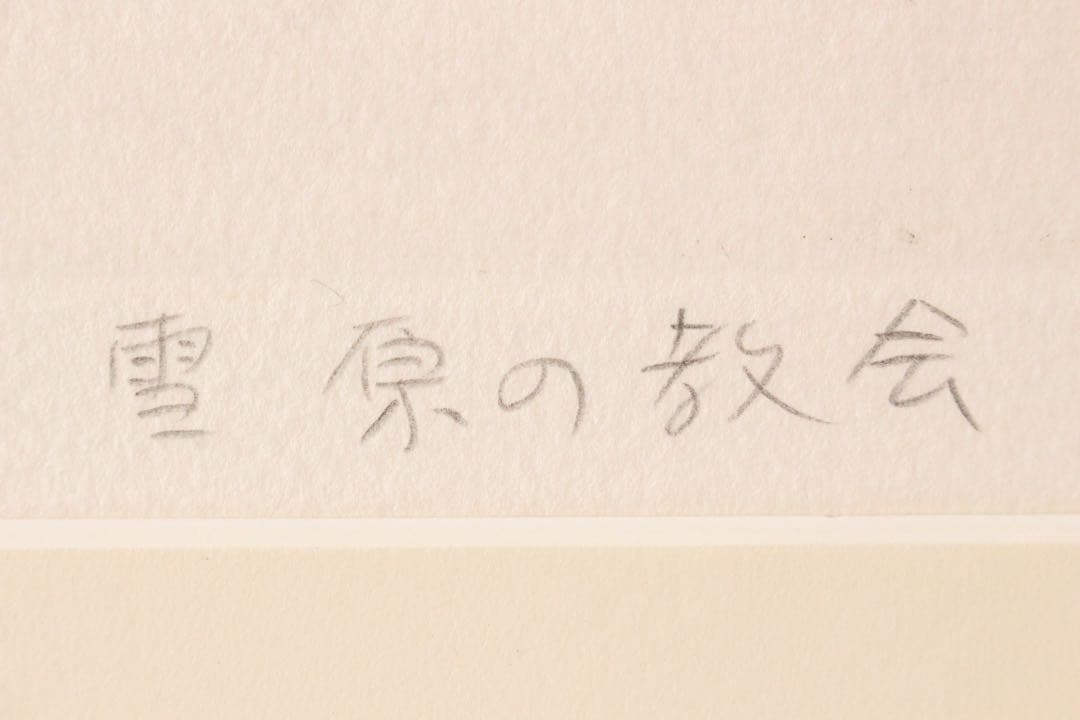 雪原の教会